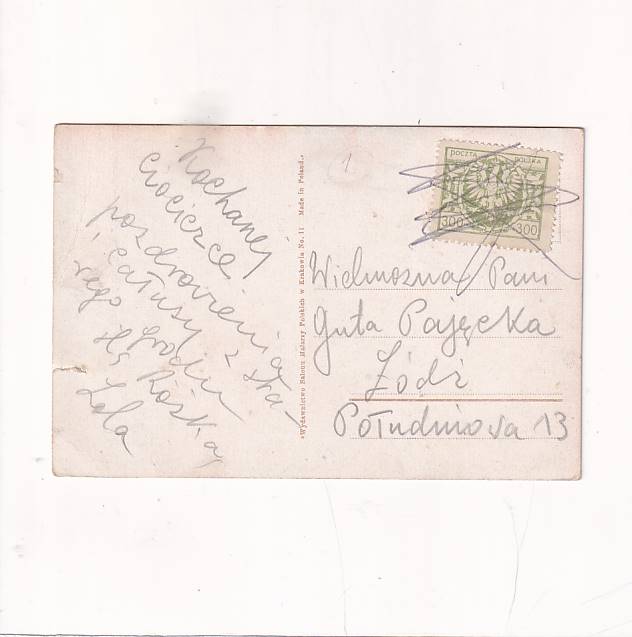 Kochanej
Cioteczce
pozdrowienia
i całusy z sta-
rego Grodu
śle Rózka,
Lola
«Wydawnictwo Salonu Malarzy Polskich w Krakowie No. 11 Made in Poland.»
1
POCZTA POLSKA
300 300
Wielmożna Pani
Guta Pajęcka
Łódź
Południowa 13